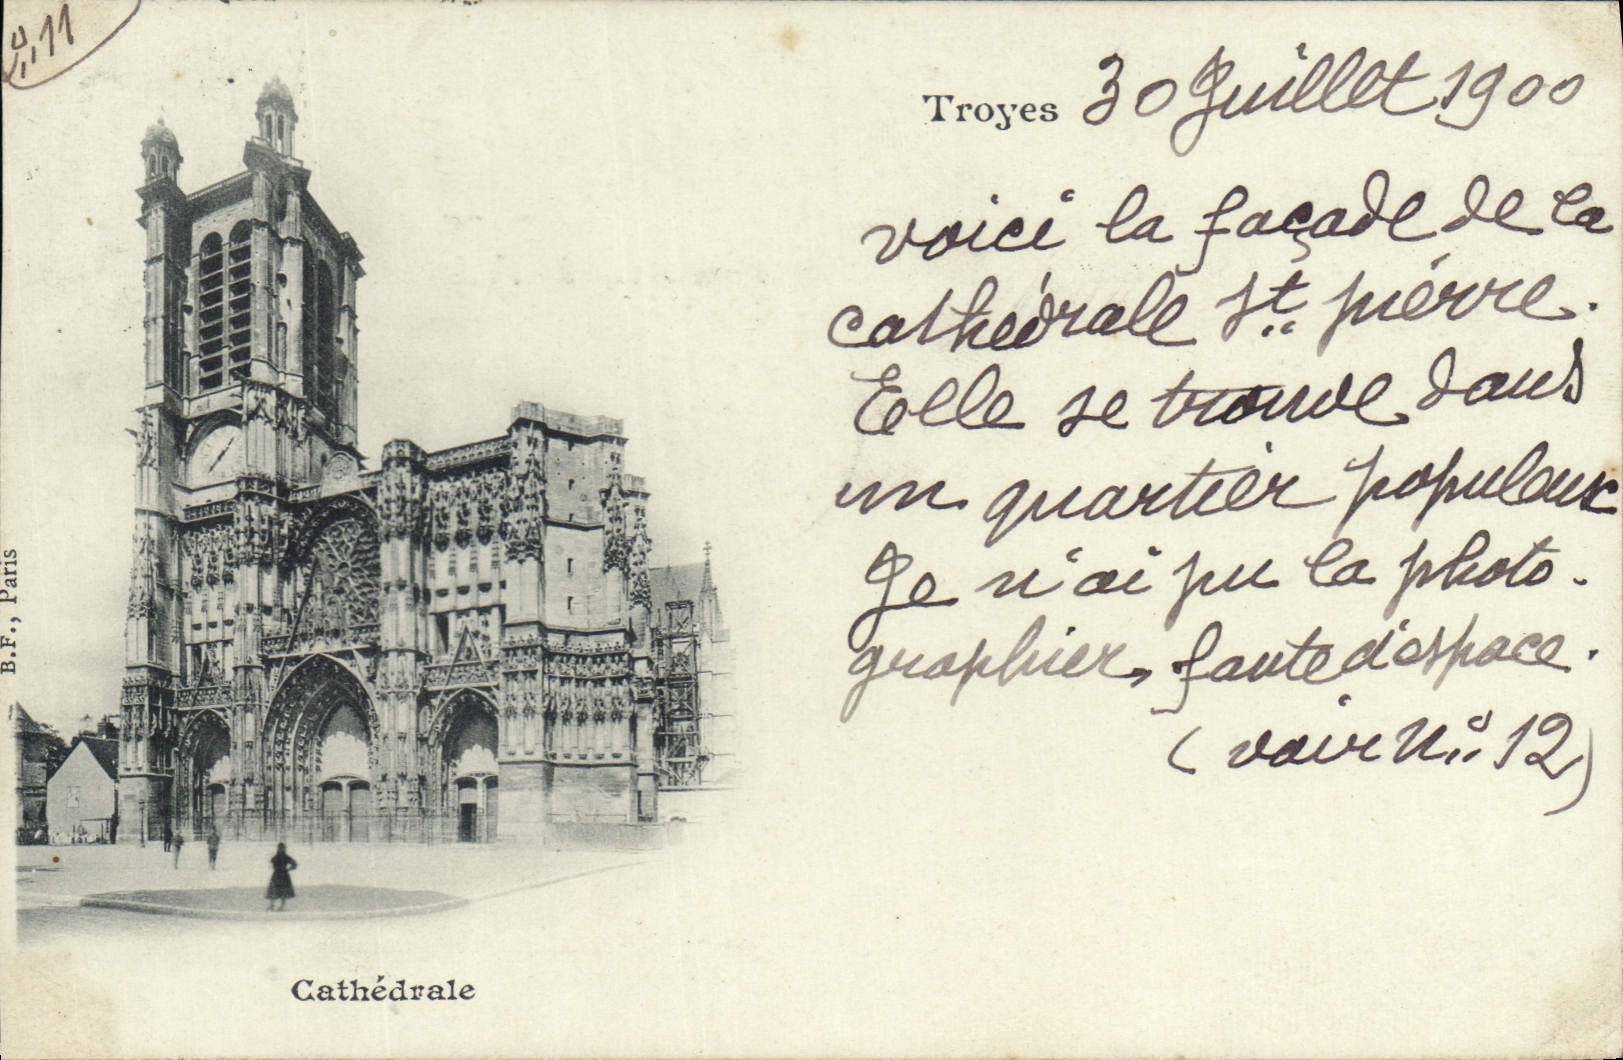 N° 11
Troyes 30 Juillet 1900
voici la façade de la
cathédrale St pierre.
Elle se trouve dans
un quartier populeux
Je n'ai pu la photo-
graphier, faute d'espace.
(voir N° 12)
B.F., Paris
Cathédrale